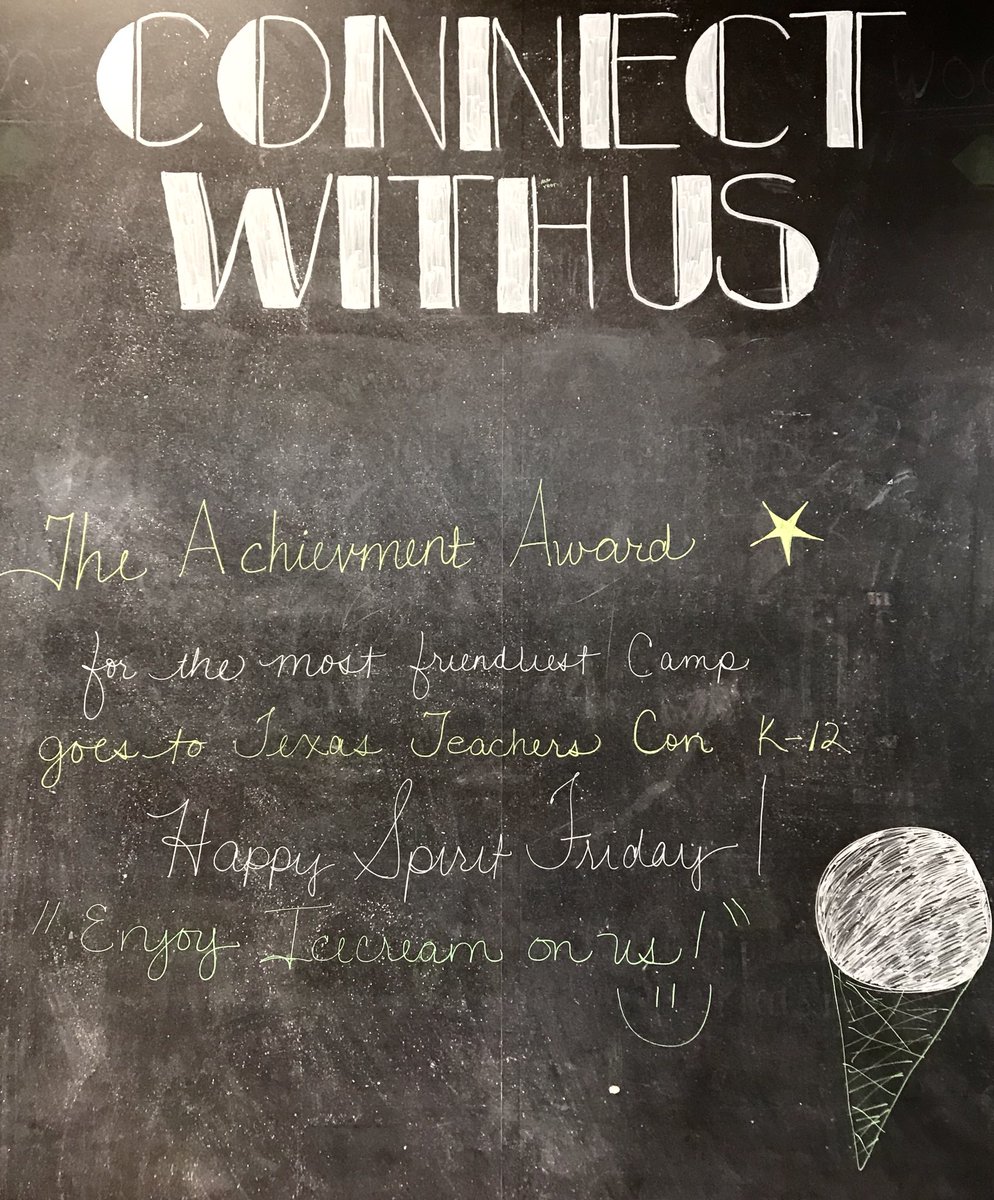 CONNECT
WITH US
The Achievment Award
for the most friendliest Camp
goes to Texas Teachers Con K-12
Happy Spirit Friday!
"Enjoy Icecream on us!"